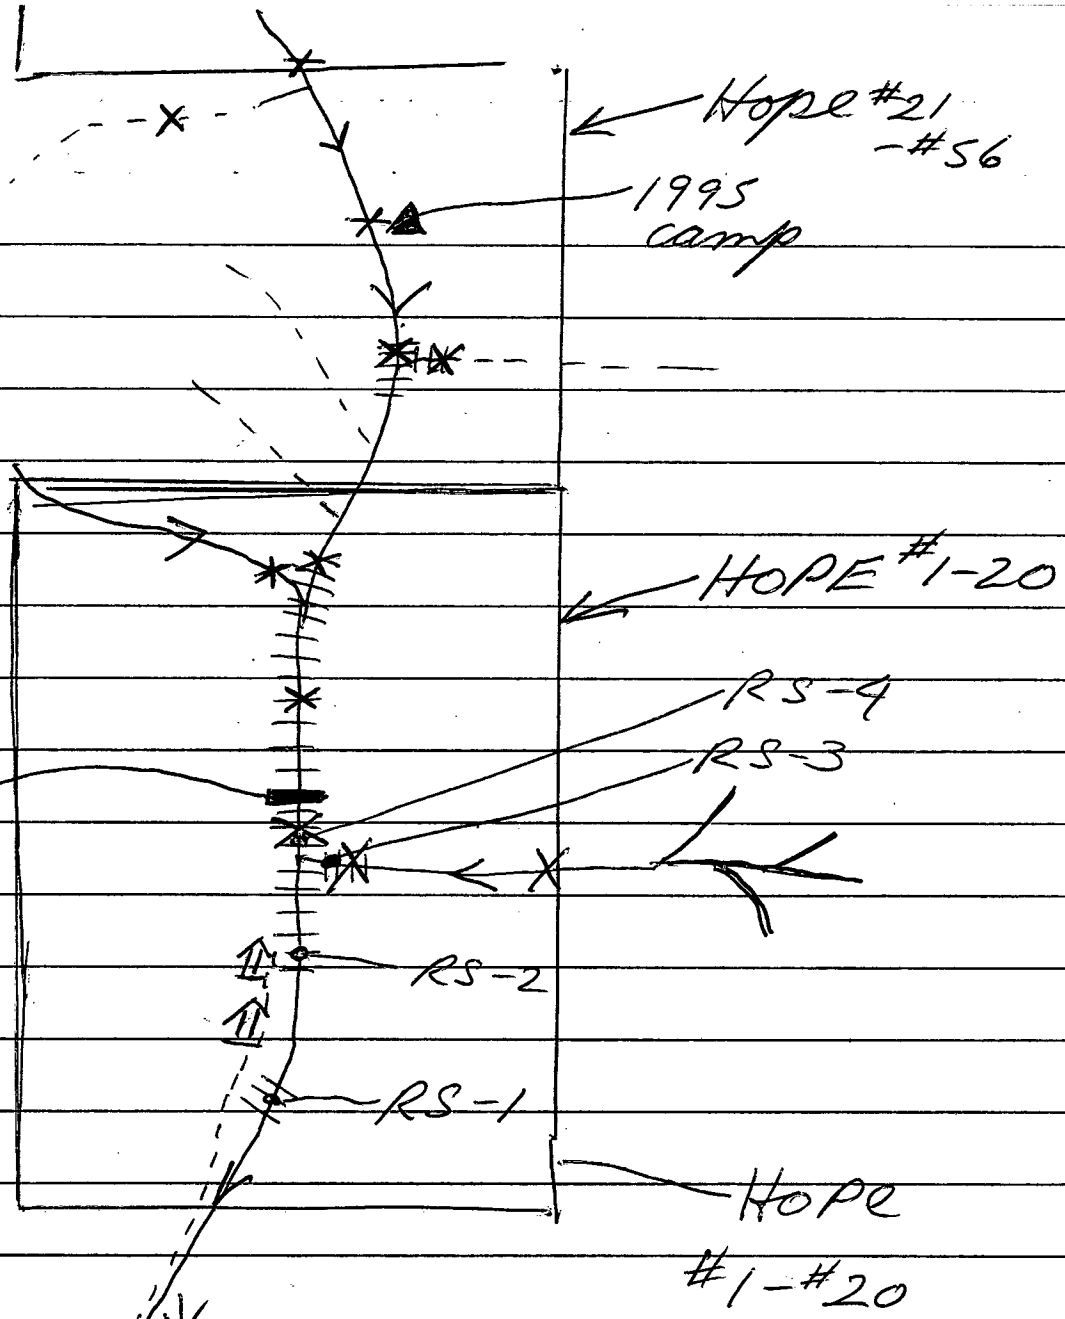 Hope #21
- #56
1995
camp
HOPE #1-20
RS-4
RS-3
RS-2
RS-1
HOPE
#1-#20